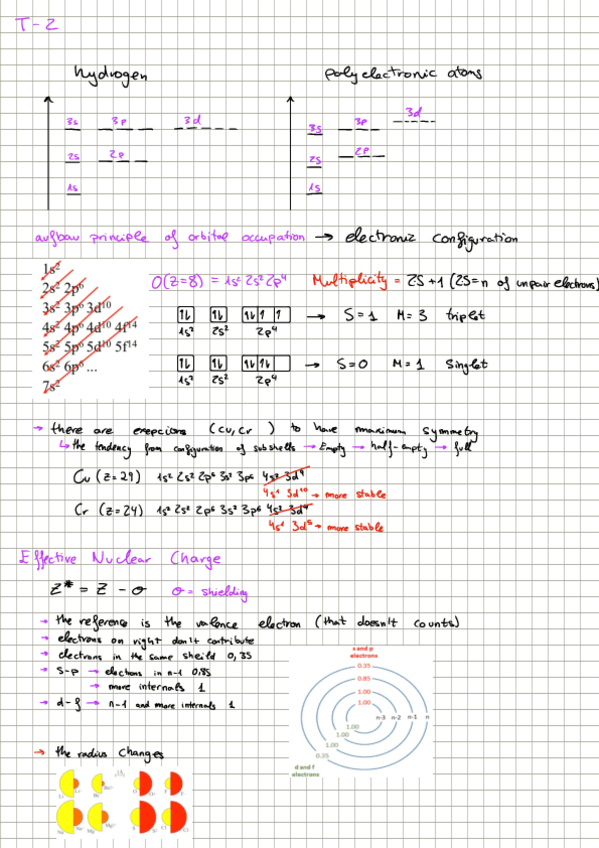 T-2
hydrogen
polyelectronic atoms
3s 3p 3d
2s 2p
1s
3d
3s 3p
2s 2p
1s
aufbau principle of orbital occupation → electronic configuration
1s²
2s² 2p⁶
3s² 3p⁶ 3d¹⁰
4s² 4p⁶ 4d¹⁰ 4f¹⁴
5s² 5p⁶ 5d¹⁰ 5f¹⁴
6s² 6p⁶ ...
7s²
O(Z=8) = 1s² 2s² 2p⁴
Multiplicity = 2S+1 (2S=n of unpair electrons)
1s² 2s² 2p⁴ → S=1 M=3 triplet
1s² 2s² 2p⁴ → S=0 M=1 Singlet
→ there are exepcions (Cu, Cr ) to have maximum symmetry
↳ the tendency from configuration of subshells → Empty → half-empty → full
Cu (Z=29) 1s² 2s² 2p⁶ 3s² 3p⁶ 4s² 3d⁹
4s¹ 3d¹⁰ → more stable
Cr (Z=24) 1s² 2s² 2p⁶ 3s² 3p⁶ 4s² 3d⁴
4s¹ 3d⁵ → more stable
Effective Nuclear Charge
Z* = Z - σ σ = shielding
→ the reference is the valence electron (that doesn't counts)
→ electrons on right don't contribute
→ electrons in the same sheild 0,35
→ s-p → electrons in n-1 0.85
→ more internals 1
→ d-f → n-1 and more internals 1
s and p
electrons
0.35
0.85
1.00
1.00
n-3 n-2 n-1 n
1.00
1.00
1.00
0.35
d and f
electrons
→ the radius changes